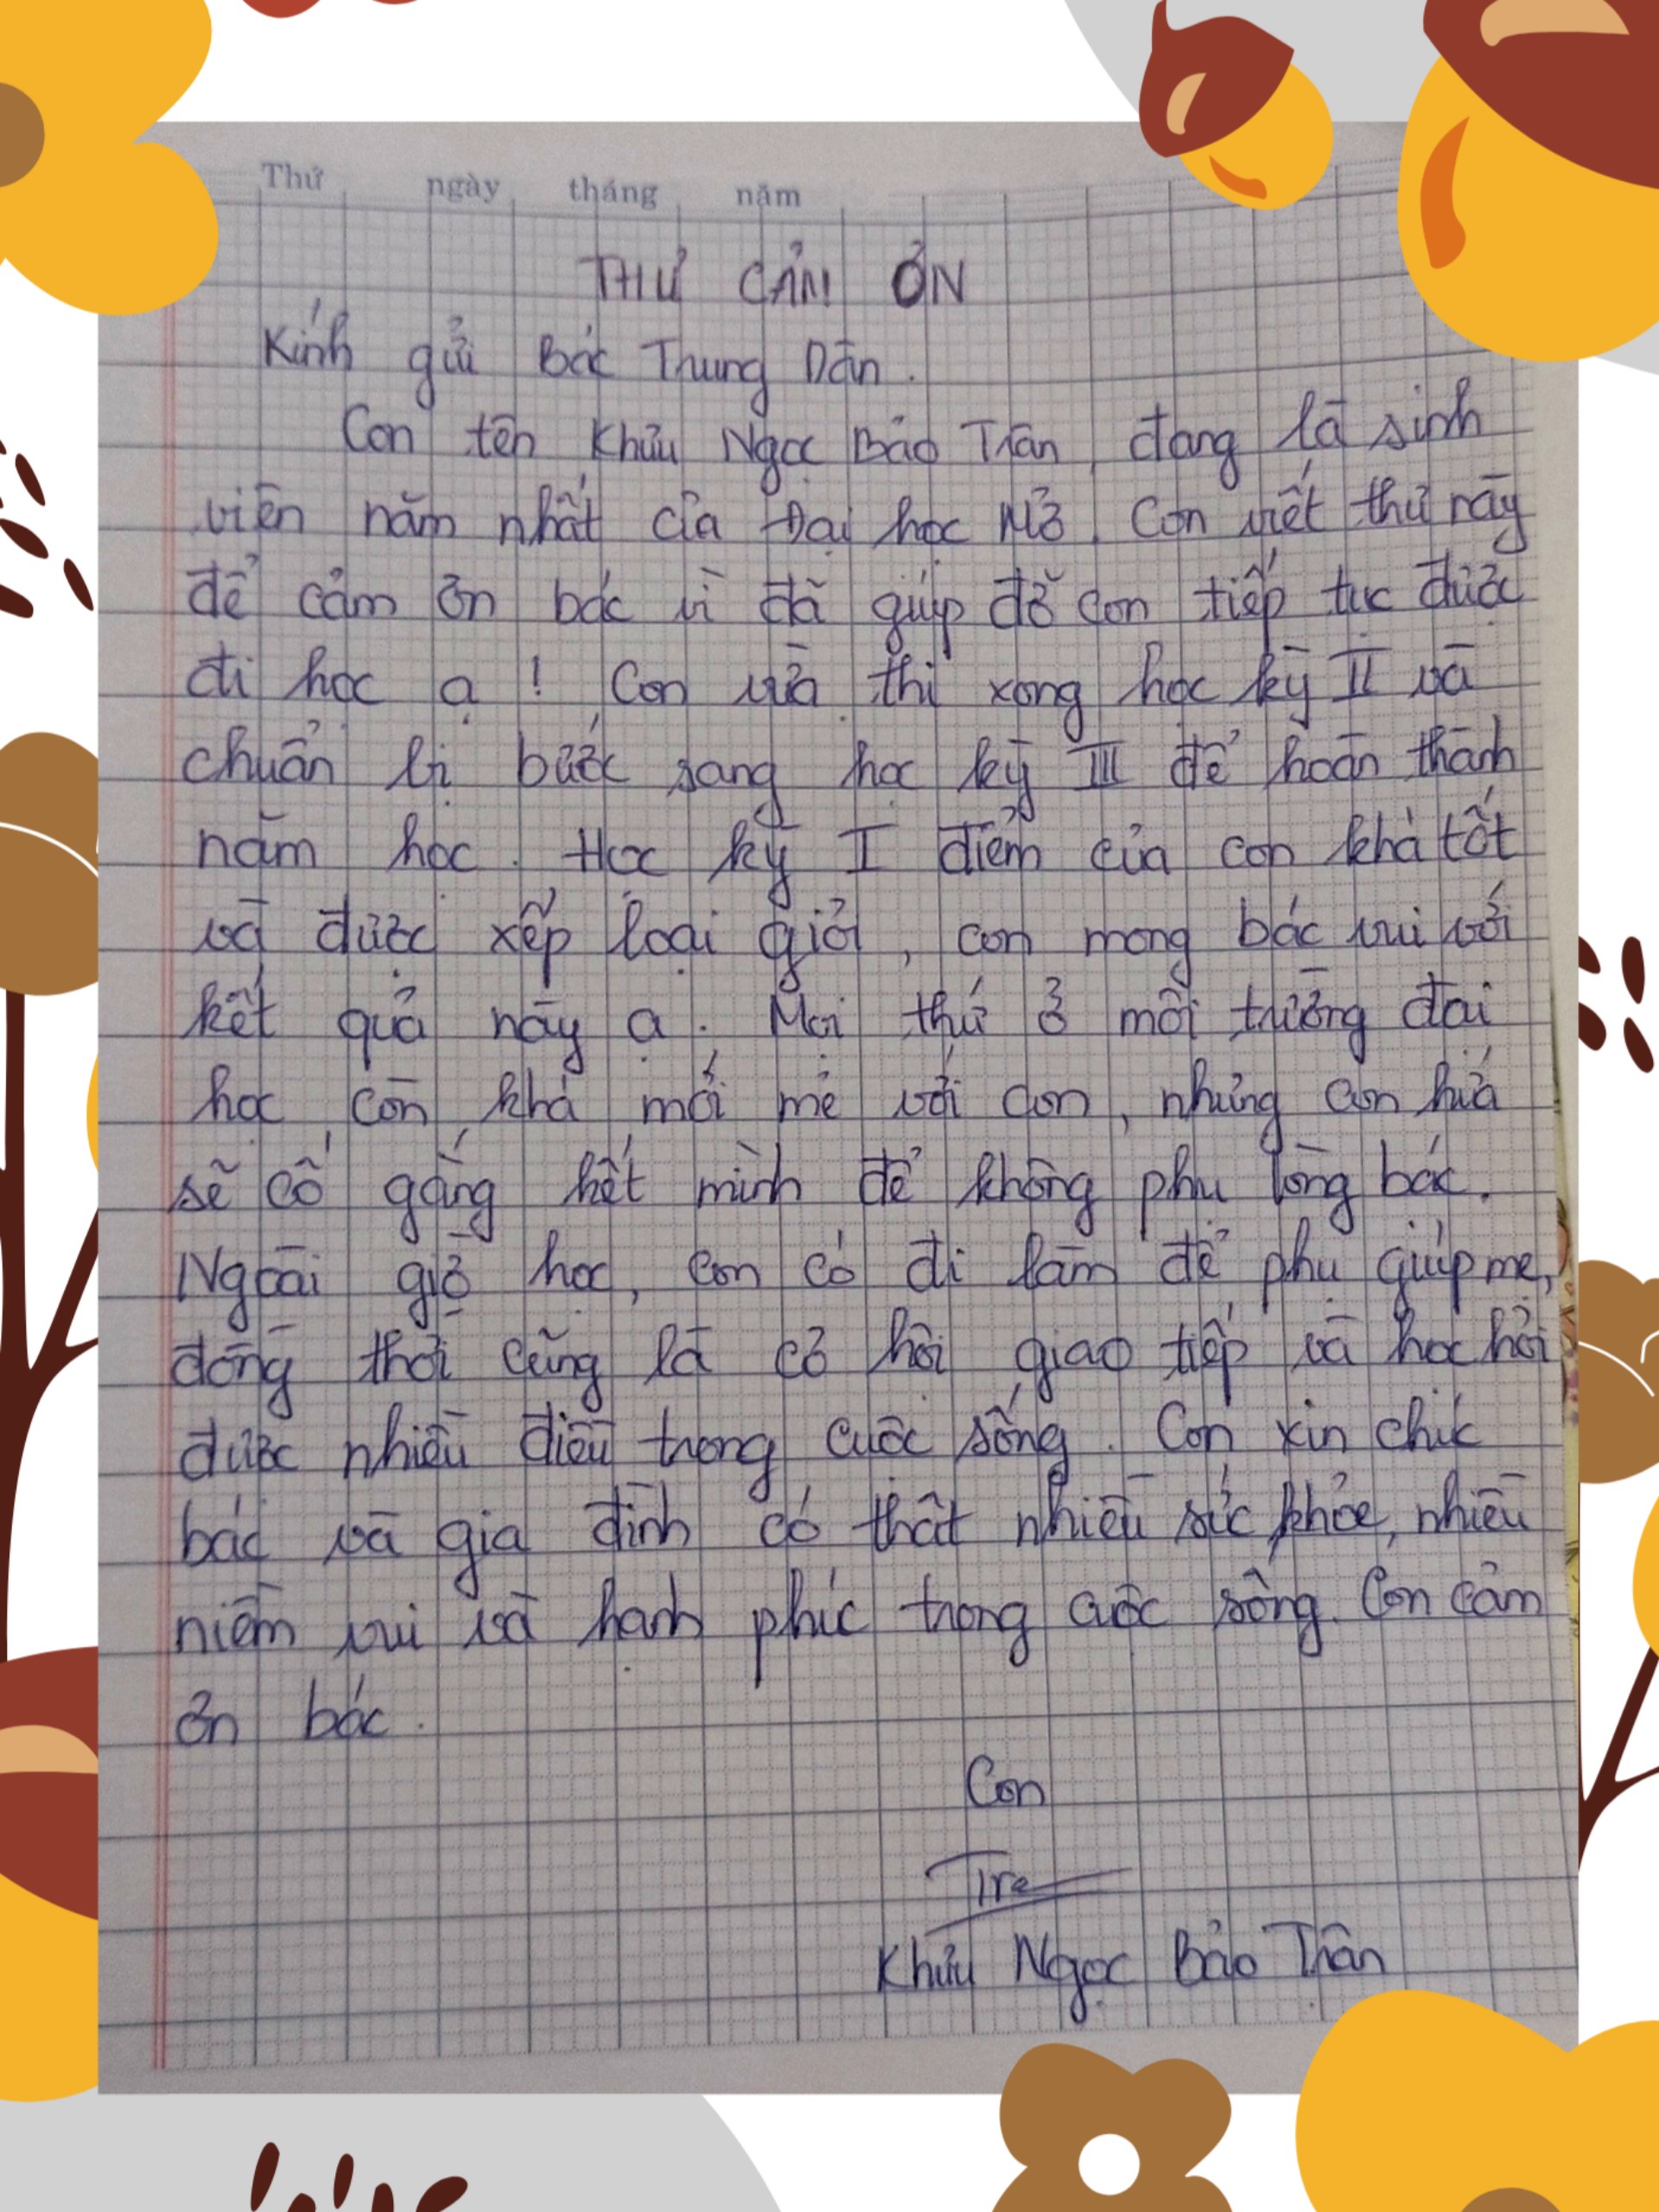 Thứ ngày tháng năm
THƯ CẢM ƠN
Kính gửi Bác Trung Dân.
Con tên Khưu Ngọc Bảo Trân, đang là sinh
viên năm nhất của Đại học Mở. Con viết thư này
để cảm ơn bác vì đã giúp đỡ con tiếp tục được
đi học ạ! Con vừa thi xong học kỳ II và
chuẩn bị bước sang học kỳ III để hoàn thành
năm học. Học kỳ I điểm của con khá tốt
và được xếp loại giỏi, con mong bác vui với
kết quả này ạ. Mọi thứ ở môi trường đại
học còn khá mới mẻ với con, nhưng con hứa
sẽ cố gắng hết mình để không phụ lòng bác.
Ngoài giờ học, con có đi làm để phụ giúp mẹ,
đồng thời cũng là cơ hội giao tiếp và học hỏi
được nhiều điều trong cuộc sống. Con xin chúc
bác và gia đình có thật nhiều sức khỏe, nhiều
niềm vui và hạnh phúc trong cuộc sống. Con cảm
ơn bác.
Con
Khưu Ngọc Bảo Trân